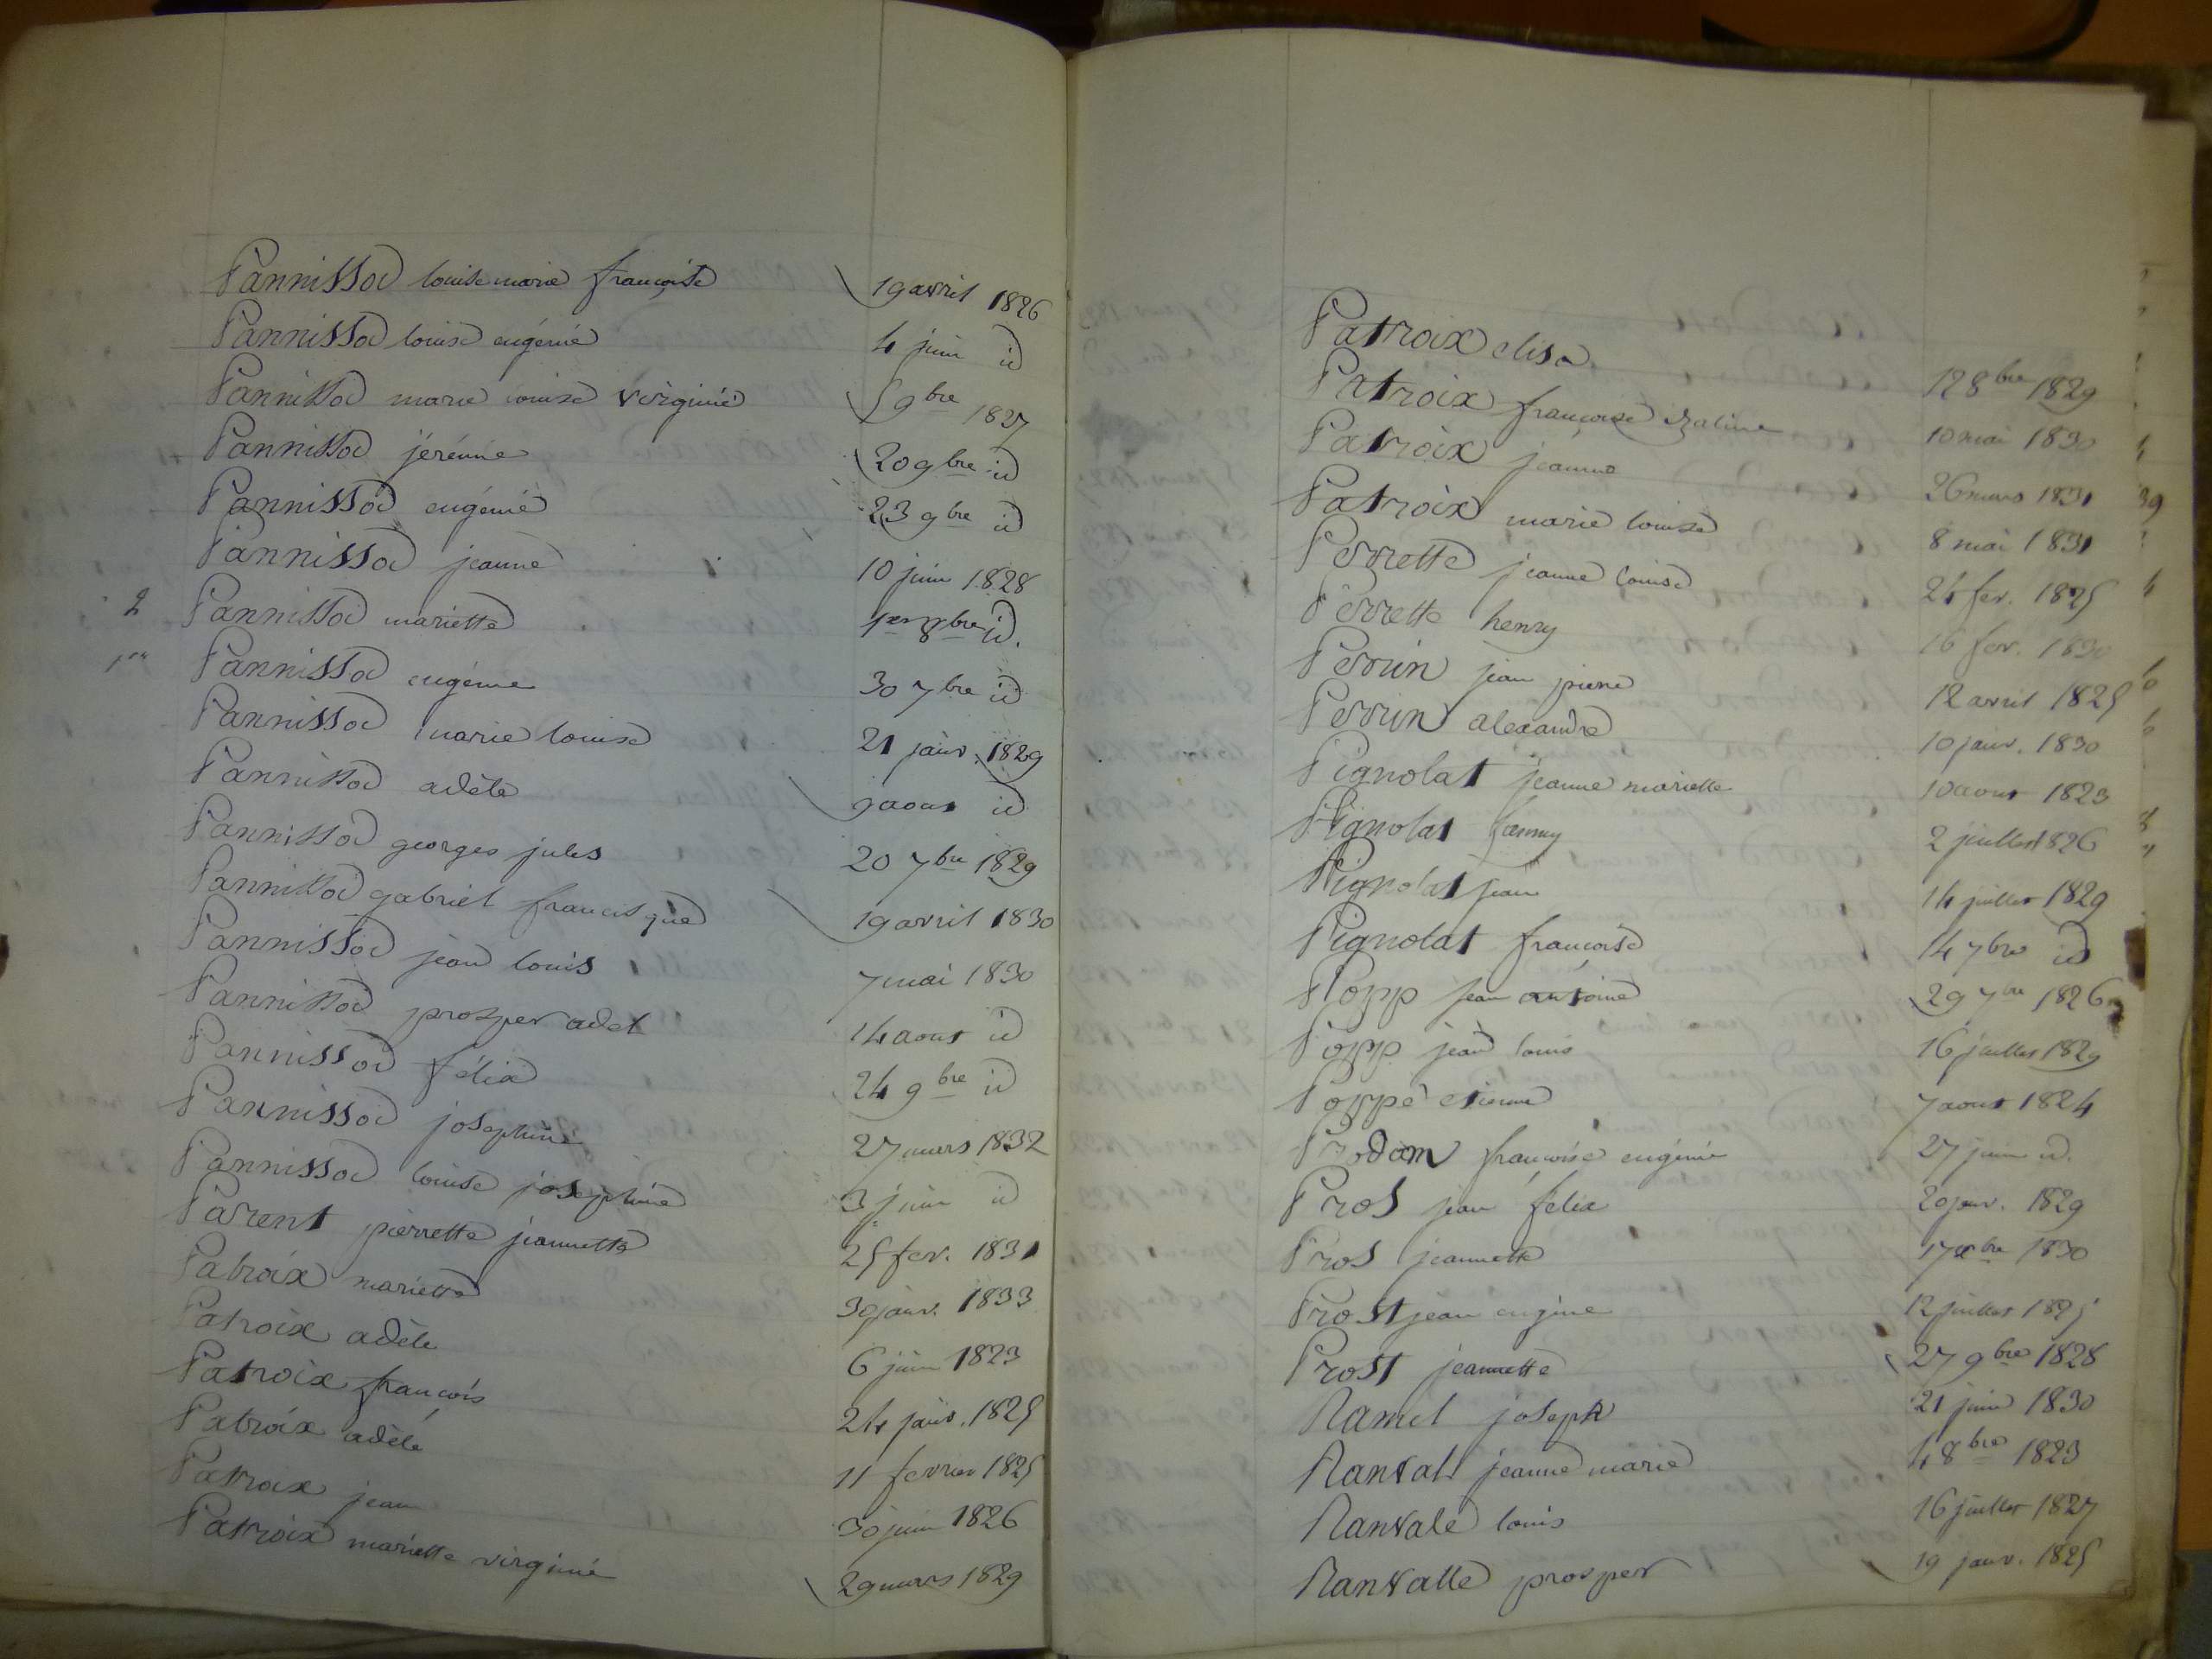 Pannissod louise marie françoise 19 avril 1826
Pannissod louise eugénie 4 juin id
Pannissod marie louise virginie 5 9bre 1827
Pannissod jérémie 20 9bre id
Pannissod eugénie 23 9bre id
Pannissod jeanne 10 juin 1828
2 Pannissod mariette 1er 8bre id.
1er Pannissod eugénie 30 7bre id
Pannissod marie louise 21 janv. 1829
Pannissod adèle 9 aout id
Pannissod georges jules 20 7bre 1829
Pannissod gabriel francisque 19 avril 1830
Pannissod jean louis 7 mai 1830
Pannissod prosper adel 14 aout id
Pannissod félix 24 9bre id
Pannissod josephine 27 mars 1832
Pannissod louise josephine 3 juin id
Parent pierrette jeannette 25 fev. 1831
Patroix mariette 30 janv. 1833
Patroix adèle 6 juin 1823
Patroix françois 24 janv. 1825
Patroix adèle 11 fevrier 1825
Patroix jean 30 juin 1826
Patroix mariette virginie 29 mars 1829
Patroix elisa 12 8bre 1829
Patroix françoise 10 mai 1830
Patroix jeanne 26 mars 1831
Patroix marie louise 8 mai 1831
Perrette jeanne louise 24 fev. 1825
Perrette henry 16 fev. 1830
Perrin jean pierre 12 avril 1825
Perrin alexandre 10 janv. 1830
Pignolat jeanne mariette 10 aout 1823
Pignolat fanny 2 juillet 1826
Pignolat jean 14 juillet 1829
Pignolat françoise 14 7bre id
Popp jean antoine 29 7bre 1826
Popp jean louis 16 juillet 1829
Poppe etienne 7 aout 1824
Prodom françoise eugénie 27 juin id.
Pros jean felix 20 janv. 1829
Pros jeannette 17 xbre 1830
Prost jean eugène 12 juillet 1825
Prost jeannette 27 9bre 1828
Ramel joseph 21 juin 1830
Ranval jeanne marie 4 8bre 1823
Ranvale louis 16 juillet 1827
Ranvalle prosper 19 janv. 1825